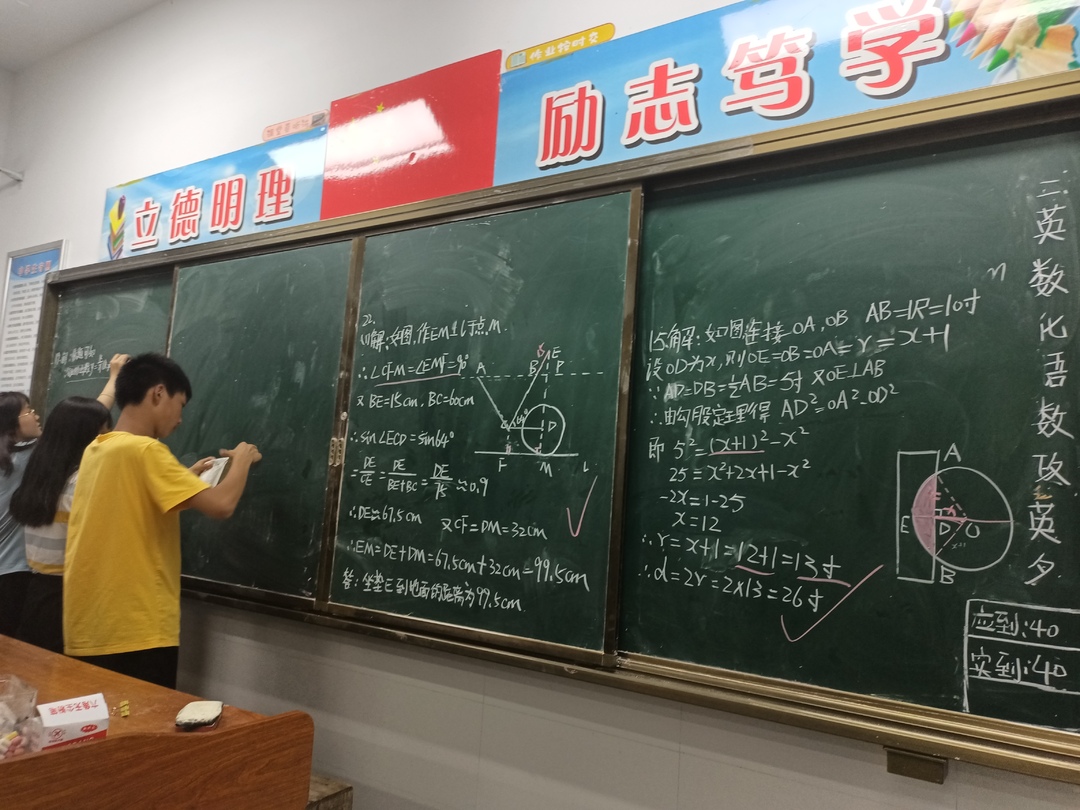 作业按时交
立德明理
励志笃学
22.
(1)解:如图,作EM⊥l于点M.
∴∠CFM=∠EMF=90°
又BE=15cm,BC=60cm
∴sin∠ECD=sin64°
=DE/CE=DE/(BE+BC)=DE/75≈0.9
∴DE≈67.5cm 又CF=DM=32cm
∴EM=DE+DM=67.5cm+32cm=99.5cm
答:坐垫E到地面的距离为99.5cm
A
B
E
P
C
64°
D
F
M
L
15.解:如图连接OA,OB AB=1尺=10寸
设OD为x,则OE=OB=OA=r=x+1
∵AD=DB=½AB=5寸 又OE⊥AB
∴由勾股定理得 AD²=OA²-OD²
即 5²=(x+1)²-x²
25=x²+2x+1-x²
-2x=1-25
x=12
∴r=x+1=12+1=13寸
∴d=2r=2x13=26寸
A
E
D
O
B
三英数化语数政英夕
应到:40
实到:40